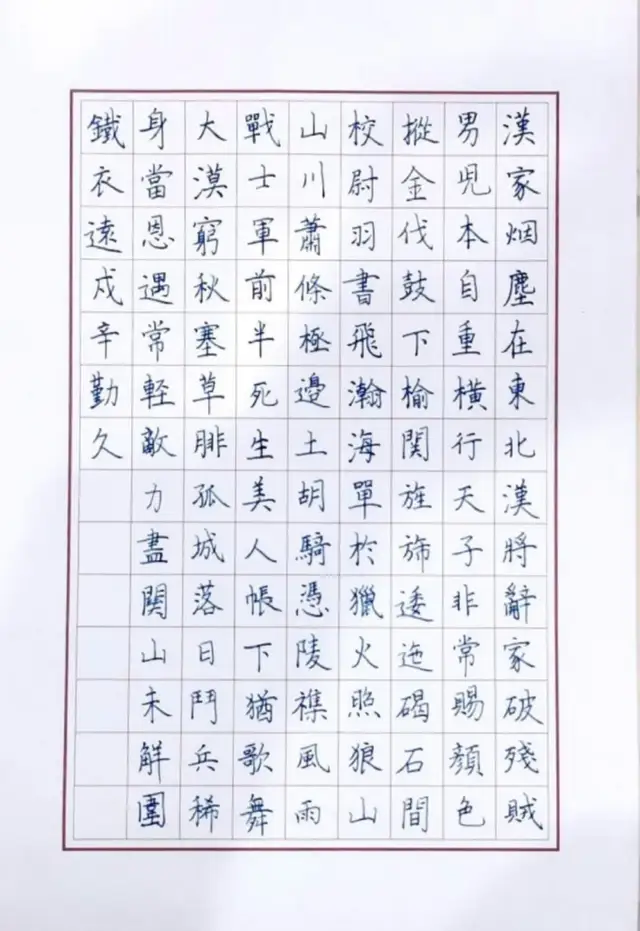 漢家烟塵在東北漢將辭家破殘賊
男児本自重橫行天子非常賜顏色
摐金伐鼓下榆関旌斾逶迤碣石間
校尉羽書飛瀚海單於獵火照狼山
山川蕭條極邊土胡騎憑陵襍風雨
戰士軍前半死生美人帳下猶歌舞
大漠窮秋塞草腓孤城落日鬥兵稀
身當恩遇常輕敵力盡関山未解圍
鐵衣遠戍辛勤久